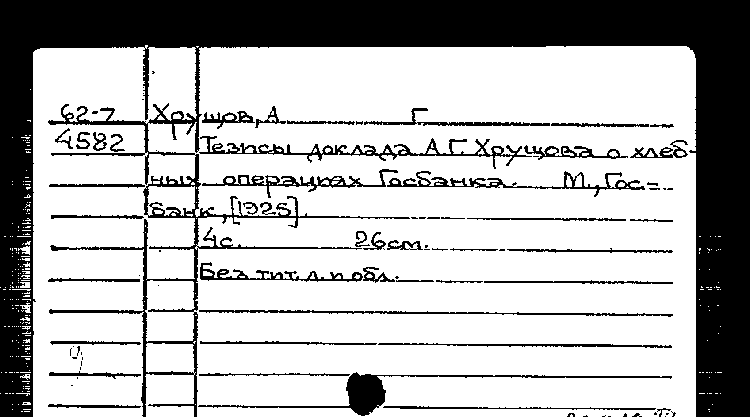 62-7 Хрущов, А Г
4582 Тезисы доклада А.Г. Хрущова о хлеб-
ных операциях Госбанка. М., Гос=
банк, [1925].
4с. 26см.
Без тит. л. и обл.